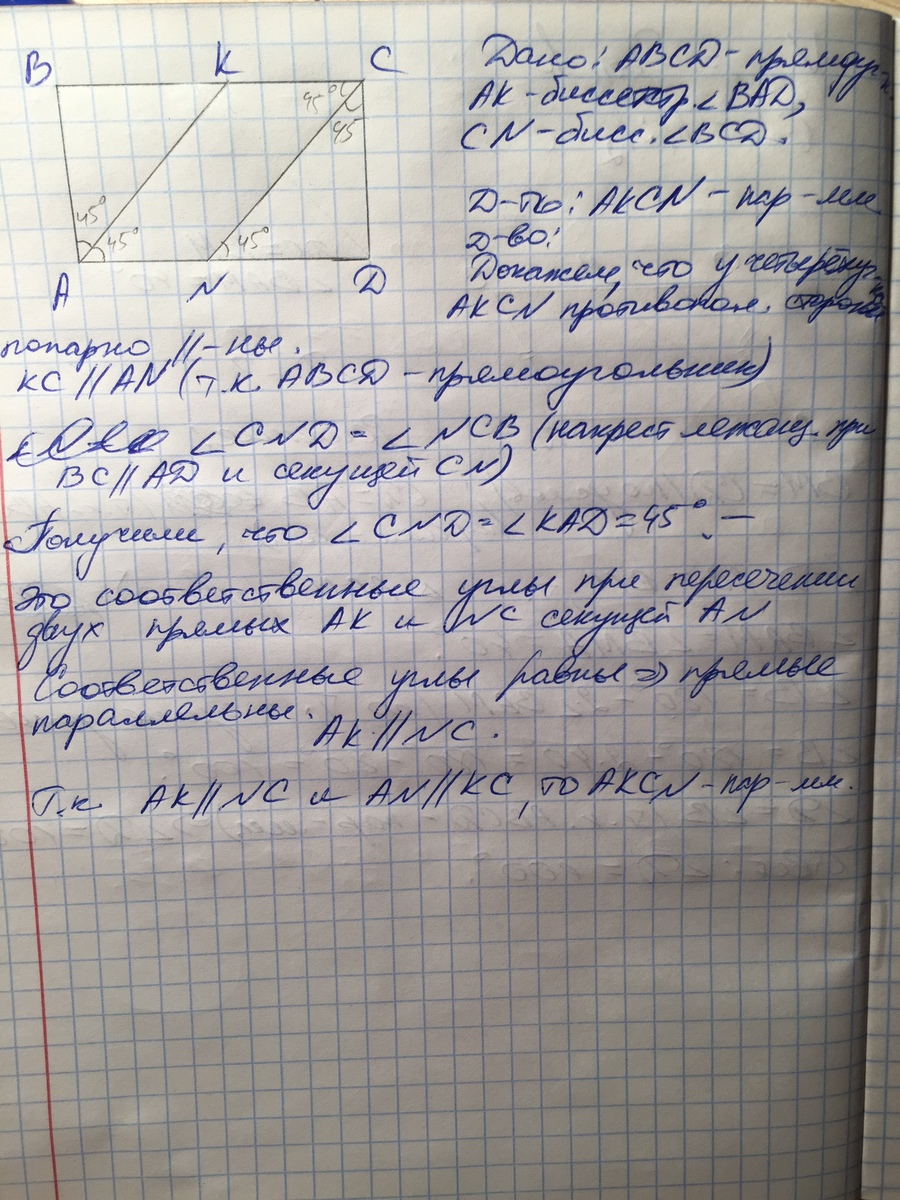 B K C
45° 45
45° 45° 45°
A N D
Дано: ABCD - прямоуг-к.
AK - биссектр. ∠BAD,
CN - бисс. ∠BCD.
Д-ть: AKCN - пар-мм
Д-во:
Докажем, что у четырёхуг-ка
AKCN противопол. стороны
попарно //-ны.
KC // AN (т.к. ABCD - прямоугольник)
∠CND = ∠NCB (накрест лежащ. при
BC // AD и секущей CN)
Получили, что ∠CND = ∠KAD = 45°. —
это соответственные углы при пересечении
двух прямых AK и NC секущей AN
Соответственные углы равны => прямые
параллельны.
AK // NC.
Т.к. AK // NC и AN // KC, то AKCN - пар-мм.